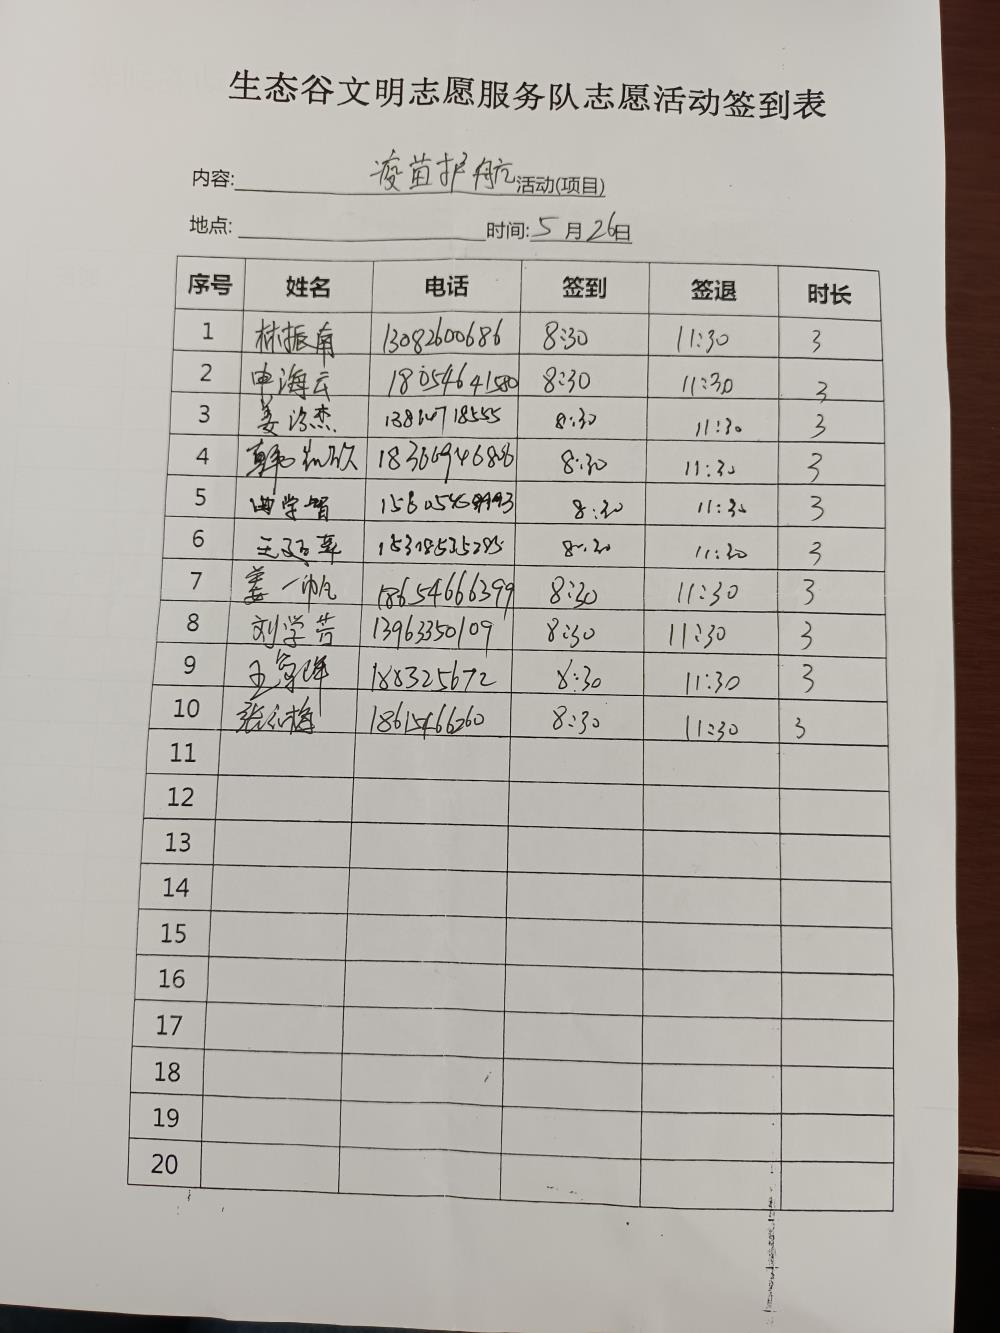 生态谷文明志愿服务队志愿活动签到表
内容: 疫苗护航 活动(项目)
地点: 时间: 5 月 26 日
序号 姓名 电话 签到 签退 时长
1 林振南 13082600686 8:30 11:30 3
2 申海云 18054641580 8:30 11:30 3
3 姜 杰 8:30 11:30 3
4 韩 欣 8:30 11:30 3
5 曲学智 8:30 11:30 3
6 王 8:30 11:30 3
7 姜一帆 18654666399 8:30 11:30 3
8 刘学芸 13963350109 8:30 11:30 3
9 王 188325672 8:30 11:30 3
10 张 梅 8:30 11:30 3
11
12
13
14
15
16
17
18
19
20